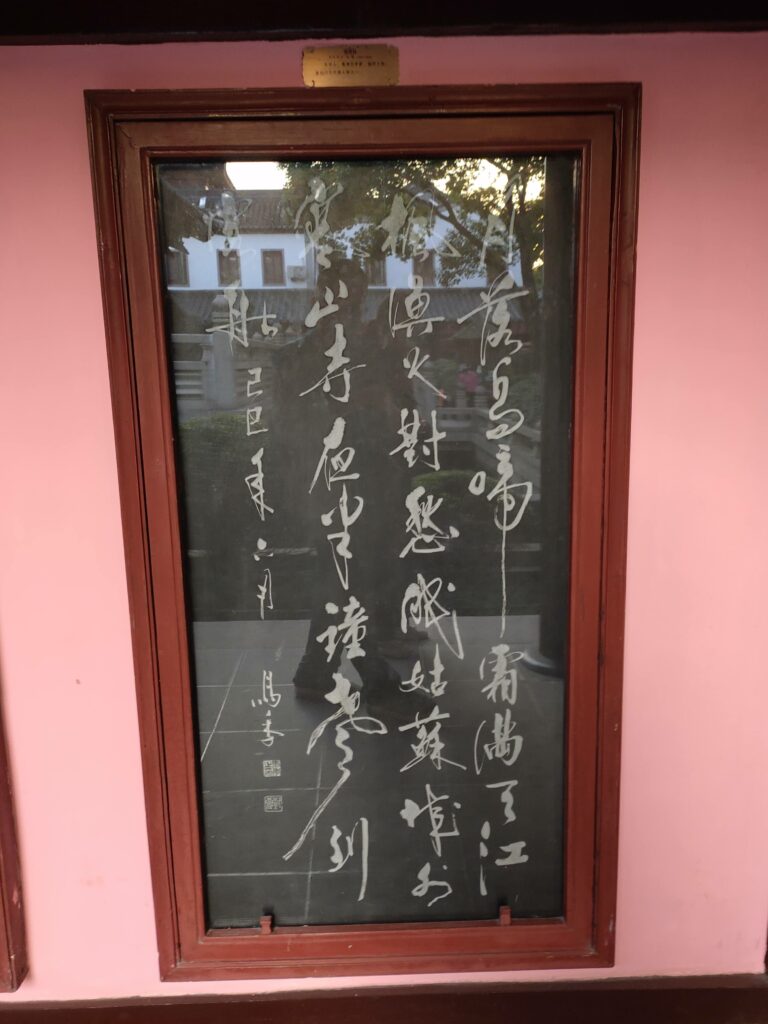 月落烏啼霜滿天江
楓漁火對愁眠姑蘇城外
寒山寺夜半鐘聲到
客船 己巳年六月 馬季